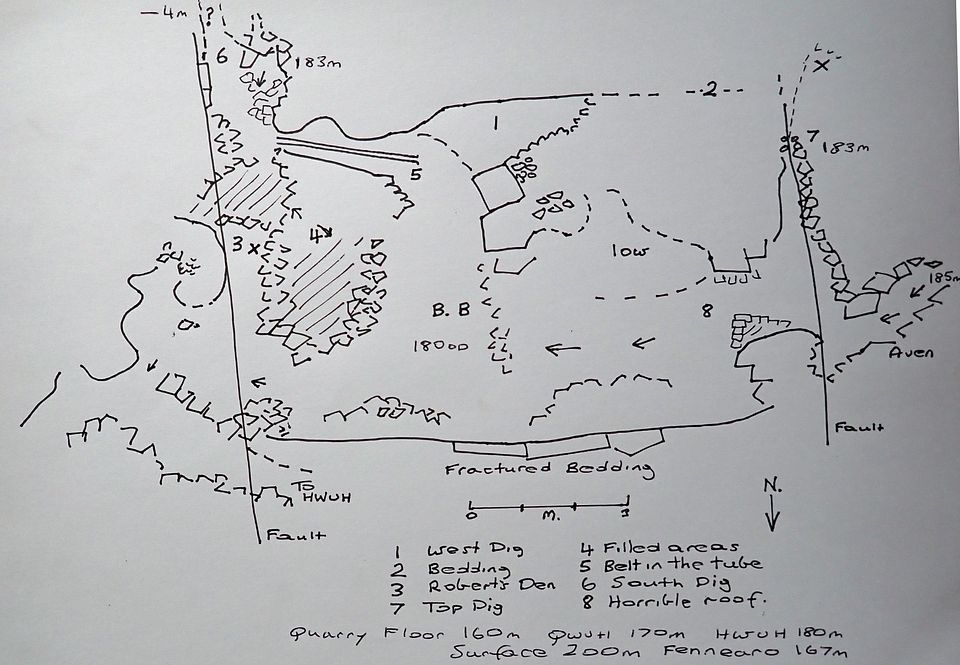 —4m ?
6
183m
2
X
1
7
183m
5
3 x
4
low
185m
B.B
8
18000
Aven
Fault
Fractured Bedding
To
HWUH
N.
0 M. 3
Fault
1 West Dig 4 Filled areas
2 Bedding 5 Belt in the tube
3 Roberts Den 6 South Dig
7 Top Dig 8 Horrible roof.
Quarry Floor 160m QWUH 170m HWUH 180m
Surface 200m Fennearo 167m